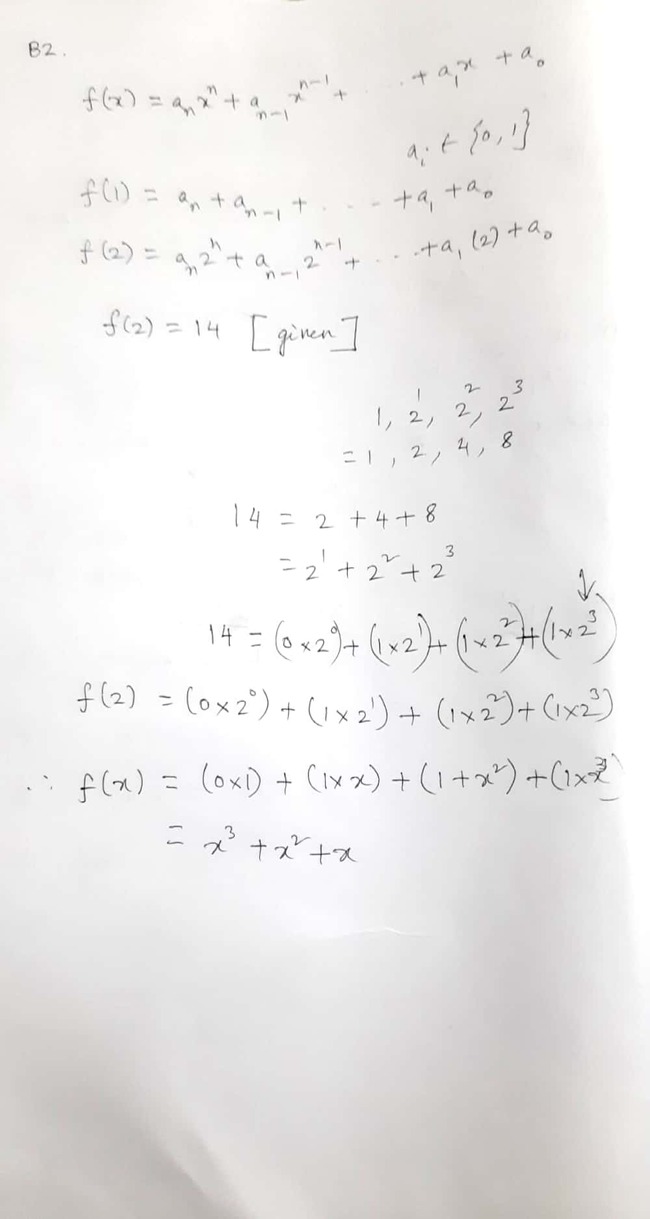 B2.
f(x) = aₙxⁿ + aₙ₋₁xⁿ⁻¹ + . . . + a₁x + a₀
aᵢ ∈ {0, 1}
f(1) = aₙ + aₙ₋₁ + . . . + a₁ + a₀
f(2) = aₙ2ⁿ + aₙ₋₁2ⁿ⁻¹ + . . . + a₁(2) + a₀
f(2) = 14 [given]
1, 2¹, 2², 2³
= 1, 2, 4, 8
14 = 2 + 4 + 8
= 2¹ + 2² + 2³
↓
14 = (0×2⁰) + (1×2¹) + (1×2²) + (1×2³)
f(2) = (0×2⁰) + (1×2¹) + (1×2²) + (1×2³)
∴ f(x) = (0×1) + (1×x) + (1+x²) + (1×x³)
= x³ + x² + x